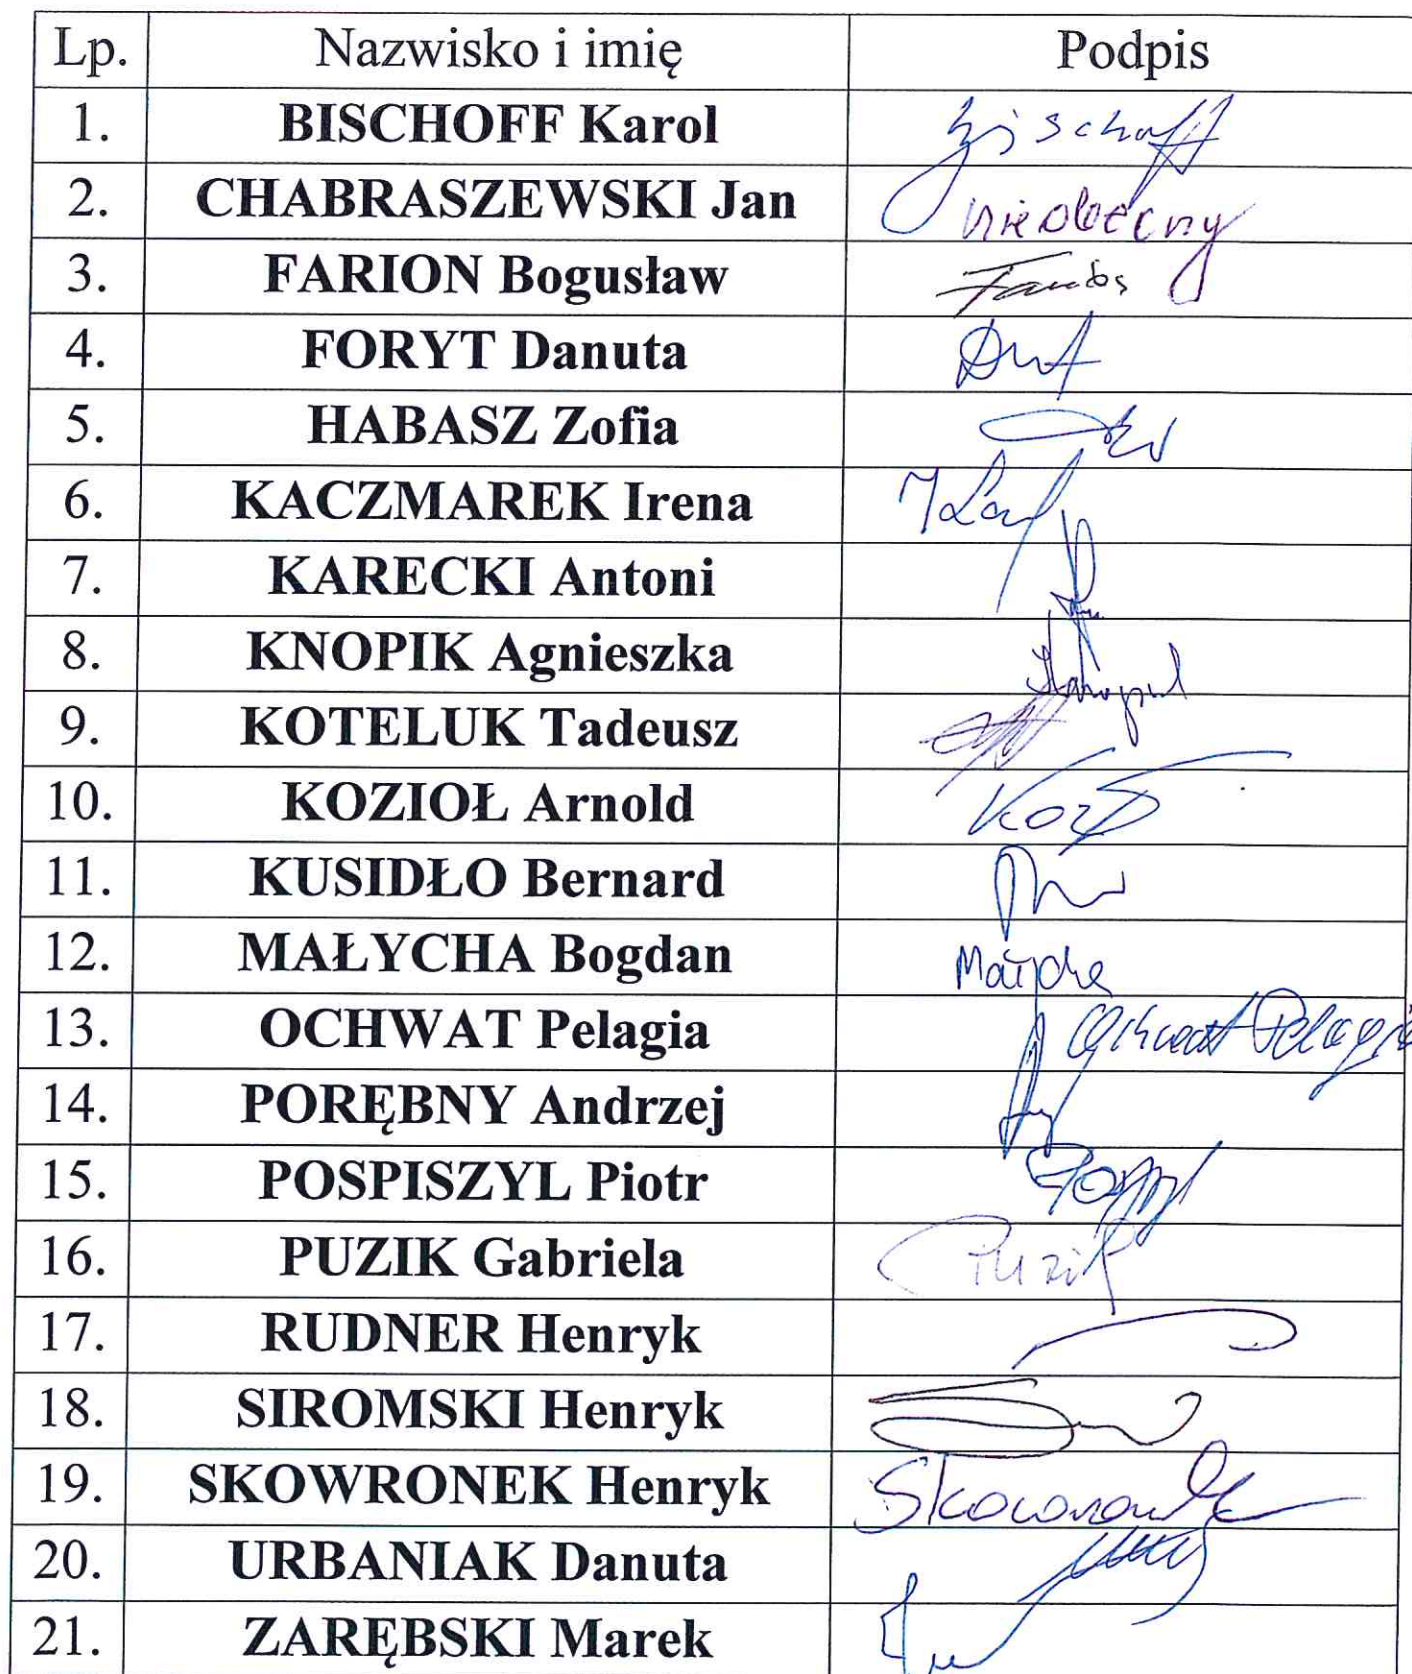 Lp. Nazwisko i imię Podpis
1. BISCHOFF Karol Bischoff
2. CHABRASZEWSKI Jan nieobecny
3. FARION Bogusław
4. FORYT Danuta
5. HABASZ Zofia
6. KACZMAREK Irena
7. KARECKI Antoni
8. KNOPIK Agnieszka
9. KOTELUK Tadeusz
10. KOZIOŁ Arnold
11. KUSIDŁO Bernard
12. MAŁYCHA Bogdan
13. OCHWAT Pelagia Ochwat Pelagia
14. PORĘBNY Andrzej
15. POSPISZYL Piotr
16. PUZIK Gabriela Puzik
17. RUDNER Henryk
18. SIROMSKI Henryk
19. SKOWRONEK Henryk Skowronek
20. URBANIAK Danuta
21. ZARĘBSKI Marek